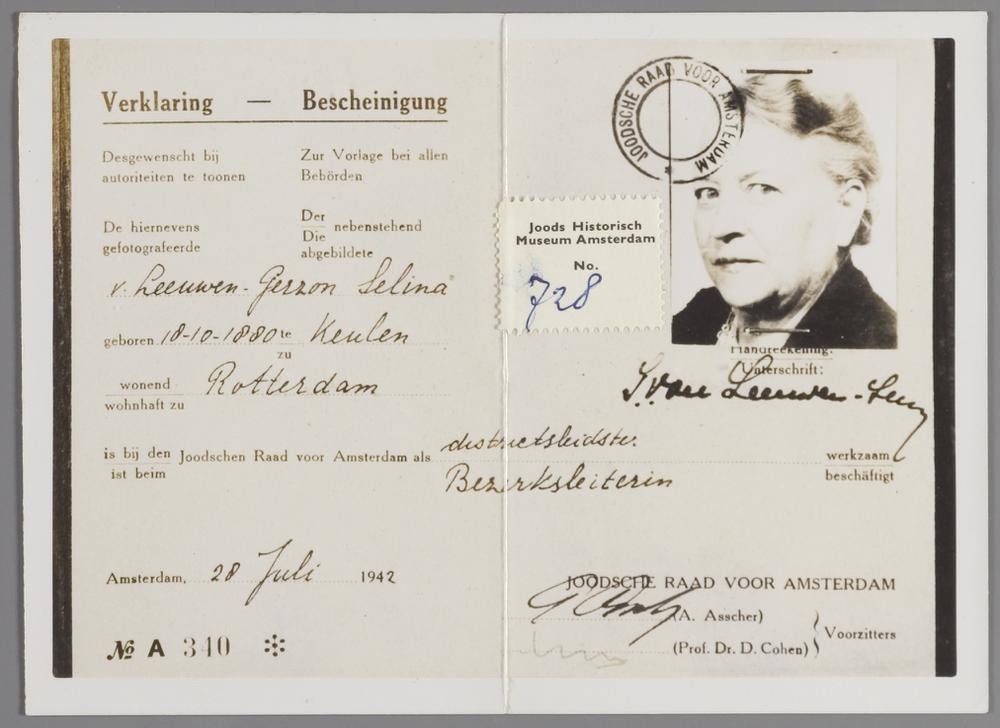 Verklaring — Bescheinigung
Desgewenscht bij autoriteiten te toonen
Zur Vorlage bei allen Behörden
De hiernevens gefotografeerde
Der
Die
nebenstehend
abgebildete
v. Leeuwen-Gerzon Selina
geboren 18-10-1880 te Keulen
zu
wonend Rotterdam
wohnhaft zu
is bij den Joodschen Raad voor Amsterdam als districtsleidster werkzaam
ist beim Bezerksleiterin beschäftigt
Amsterdam, 28 Juli 1942
No A 340
JOODSCHE RAAD VOOR AMSTERDAM
Joods Historisch
Museum Amsterdam
No.
728
Handteekening:
Unterschrift:
S. van Leeuwen-
JOODSCHE RAAD VOOR AMSTERDAM
(A. Asscher)
(Prof. Dr. D. Cohen)
Voorzitters